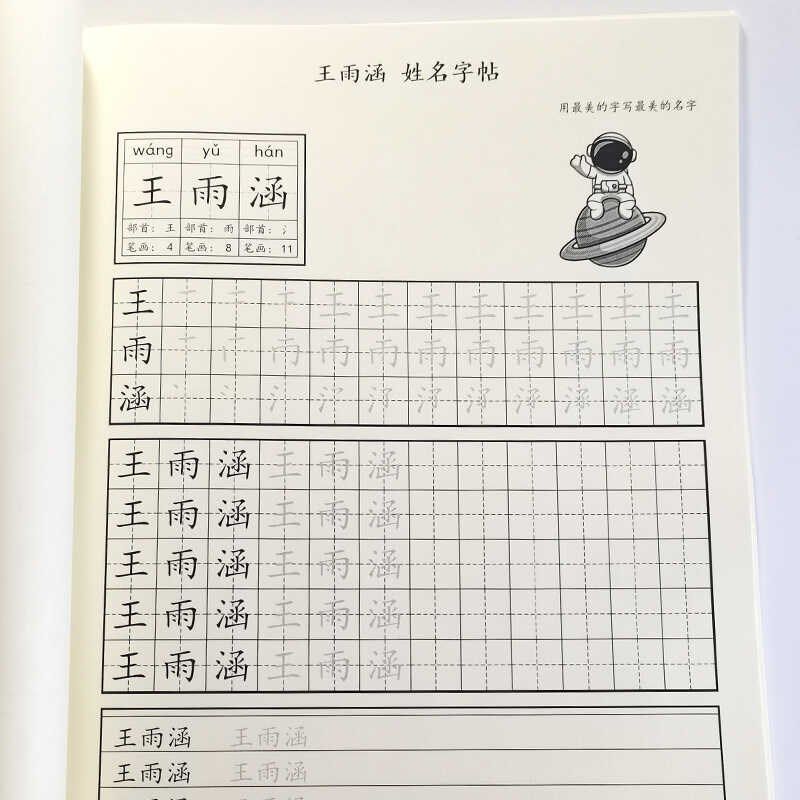 王雨涵 姓名字帖
用最美的字写最美的名字
wáng yǔ hán
王 雨 涵
部首： 王 部首： 雨 部首： 氵
笔画： 4 笔画： 8 笔画： 11
王 一 二 干 王 王 王 王 王 王 王 王
雨
涵
王 雨 涵 王 雨 涵
王 雨 涵 王 雨 涵
王 雨 涵 王 雨 涵
王 雨 涵 王 雨 涵
王 雨 涵 王 雨 涵
王雨涵 王雨涵
王雨涵 王雨涵